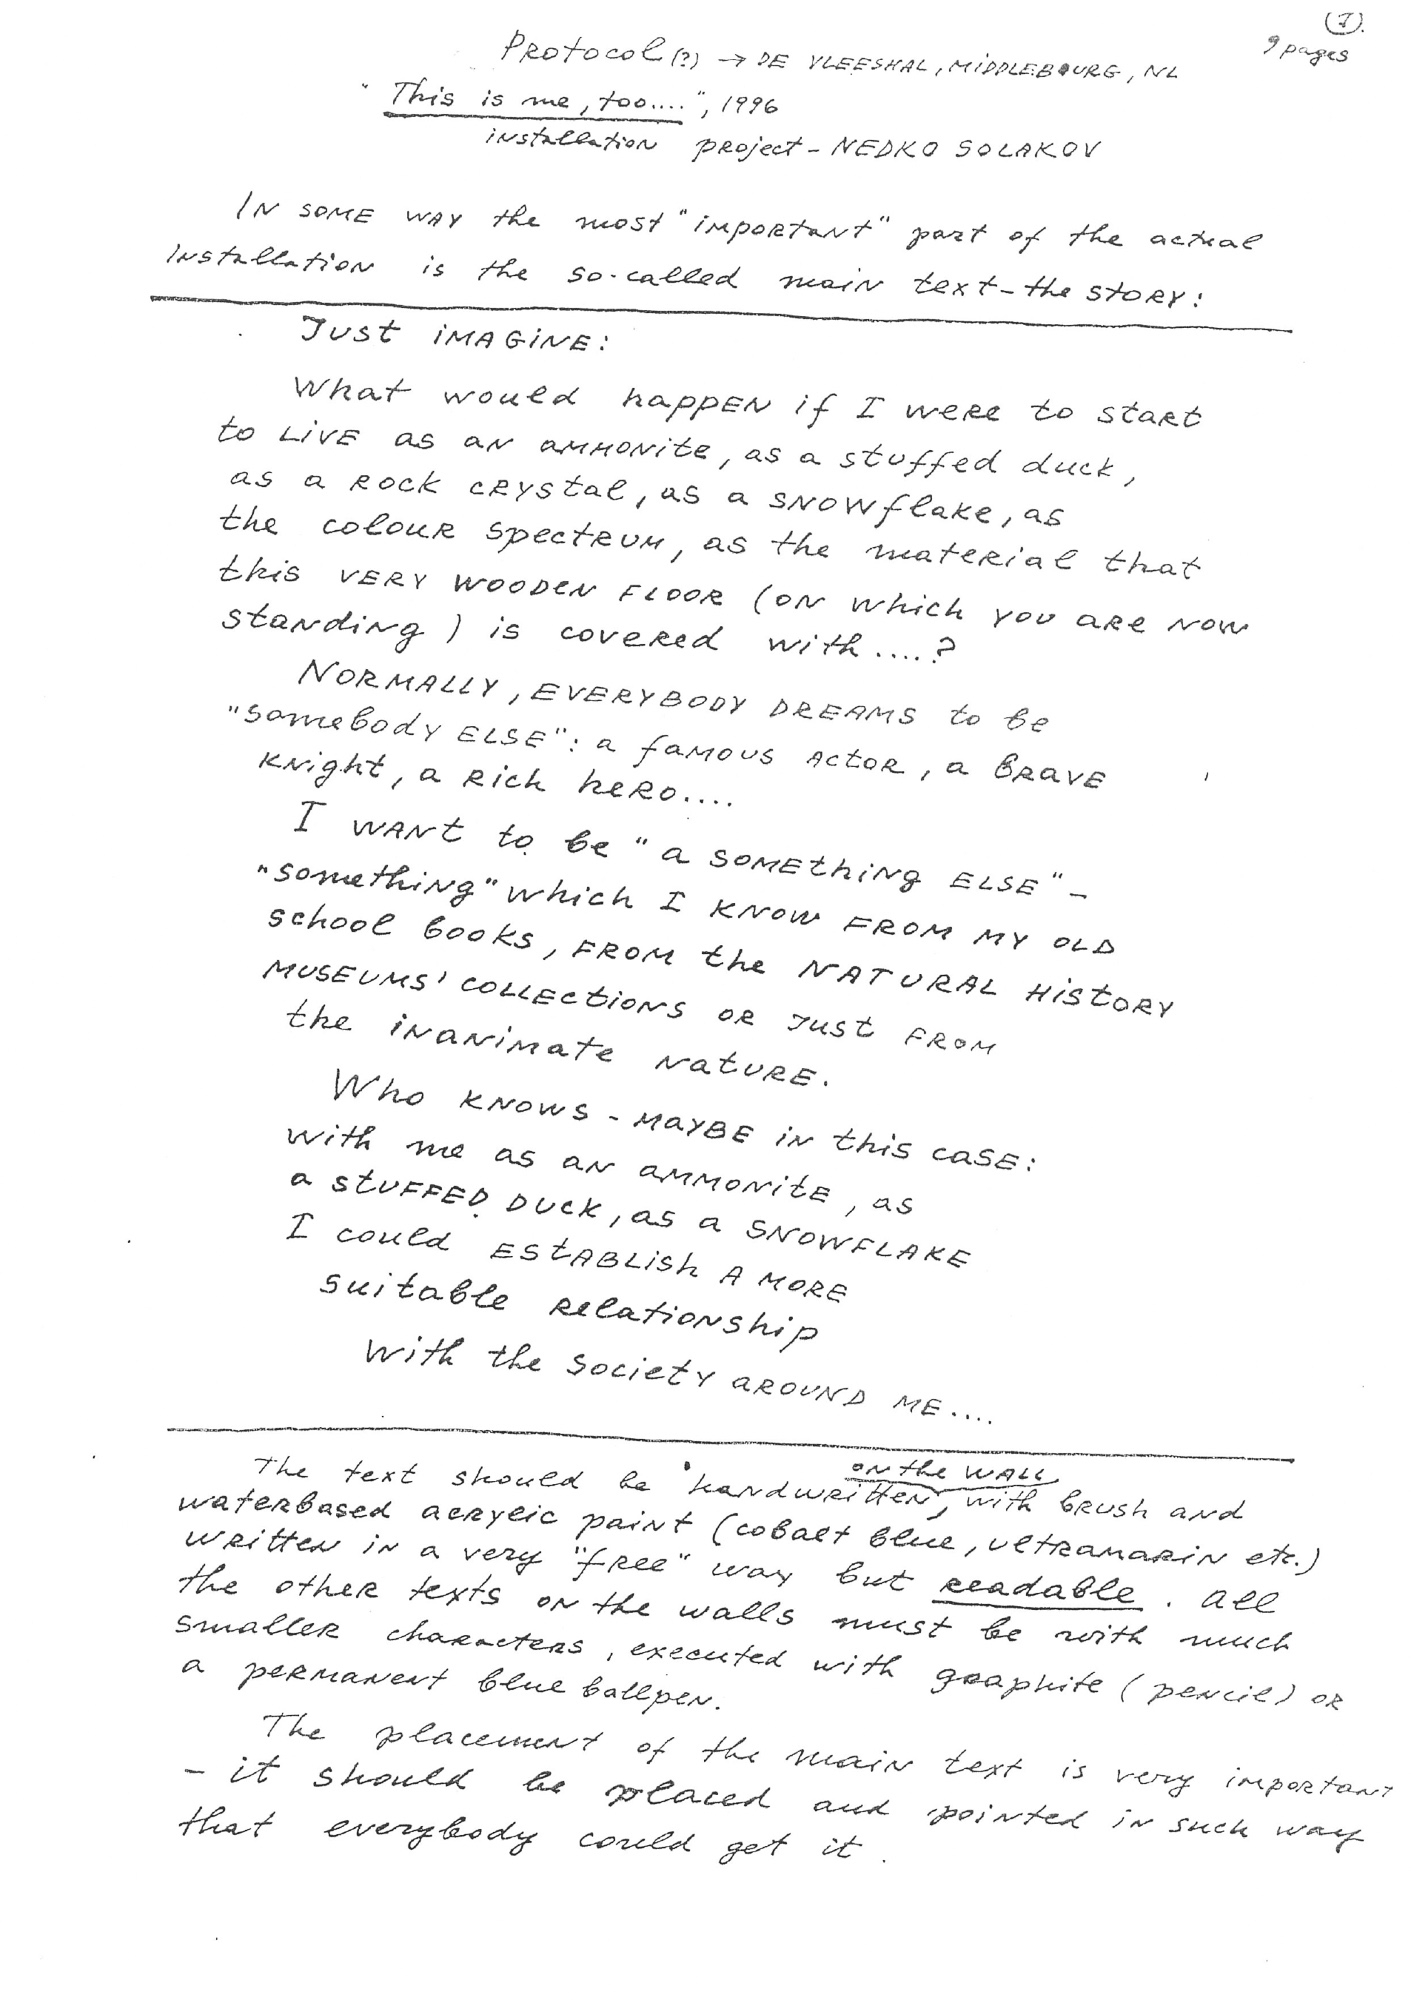 (1).
9 pages
Protocol (?) → DE VLEESHAL, MIDDLEBOURG, NL
"This is me, too....", 1996
installation project - NEDKO SOLAKOV
IN SOME WAY the most "important" part of the actual
installation is the so-called main text - the STORY:
Just IMAGINE:
What would happen if I were to start
to LIVE as an ammonite, as a stuffed duck,
as a ROCK CRYStal, as a SNOWflake, as
the colour spectrum, as the material that
this VERY WOODEN FLOOR (ON which YOU are NOW
standing) is covered with....?
NORMALLY, EVERYBODY DREAMS to be
"somebody ELSE": a famous actor, a BRAVE
Knight, a Rich heRO....
I WANT to be "a SOMEthiNG ELSE" -
"something" which I KNOW FROM MY OLD
school books, FROM the NATURAL HISTORY
MUSEUMS' COLLECTIONS OR JUST FROM
the inanimate NATURE.
Who KNOWS - MAYBE IN this CASE:
with me as an ammonite, as
a STUFFED DUCK, as a SNOWFLAKE
I could ESTABLISH A MORE
suitable relationship
with the society around ME....
on the WALL
The text should be handwritten, with brush and
waterbased acrylic paint (cobalt blue, ultramarin etc.)
written in a very "free" way but readable. All
the other texts on the walls must be with much
smaller characters, executed with graphite (pencil) or
a permanent blue ballpen.
The placement of the main text is very important
- it should be placed and pointed in such way
that everybody could get it.